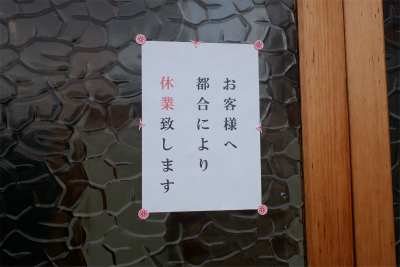 お客様へ
都合により
休業致します